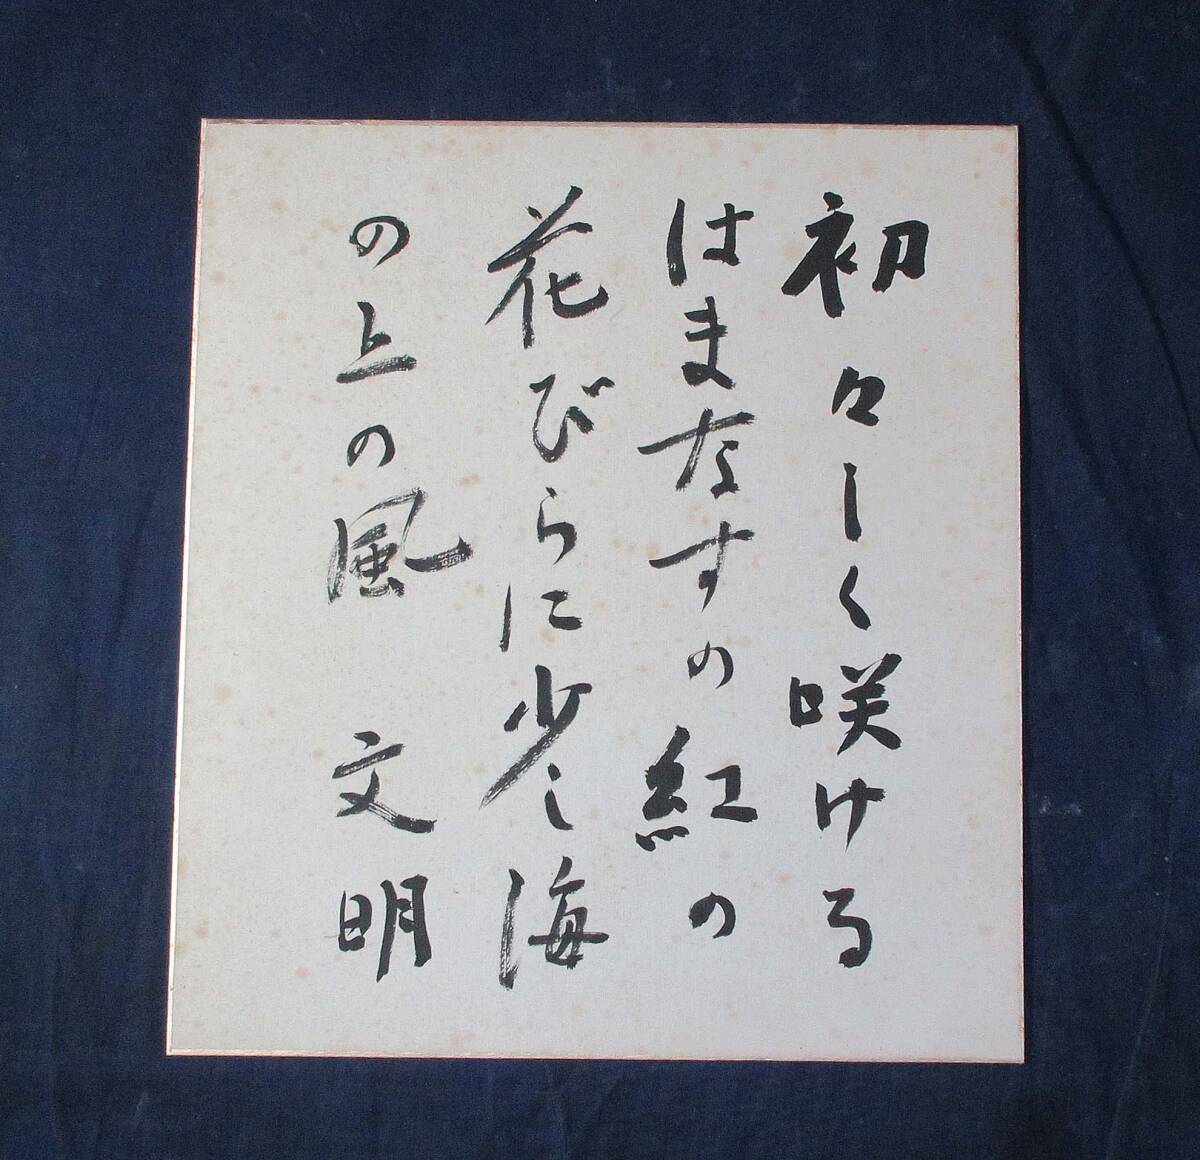 初々しく咲ける
はまなすの紅の
花びらに少し海
の上の風 文明